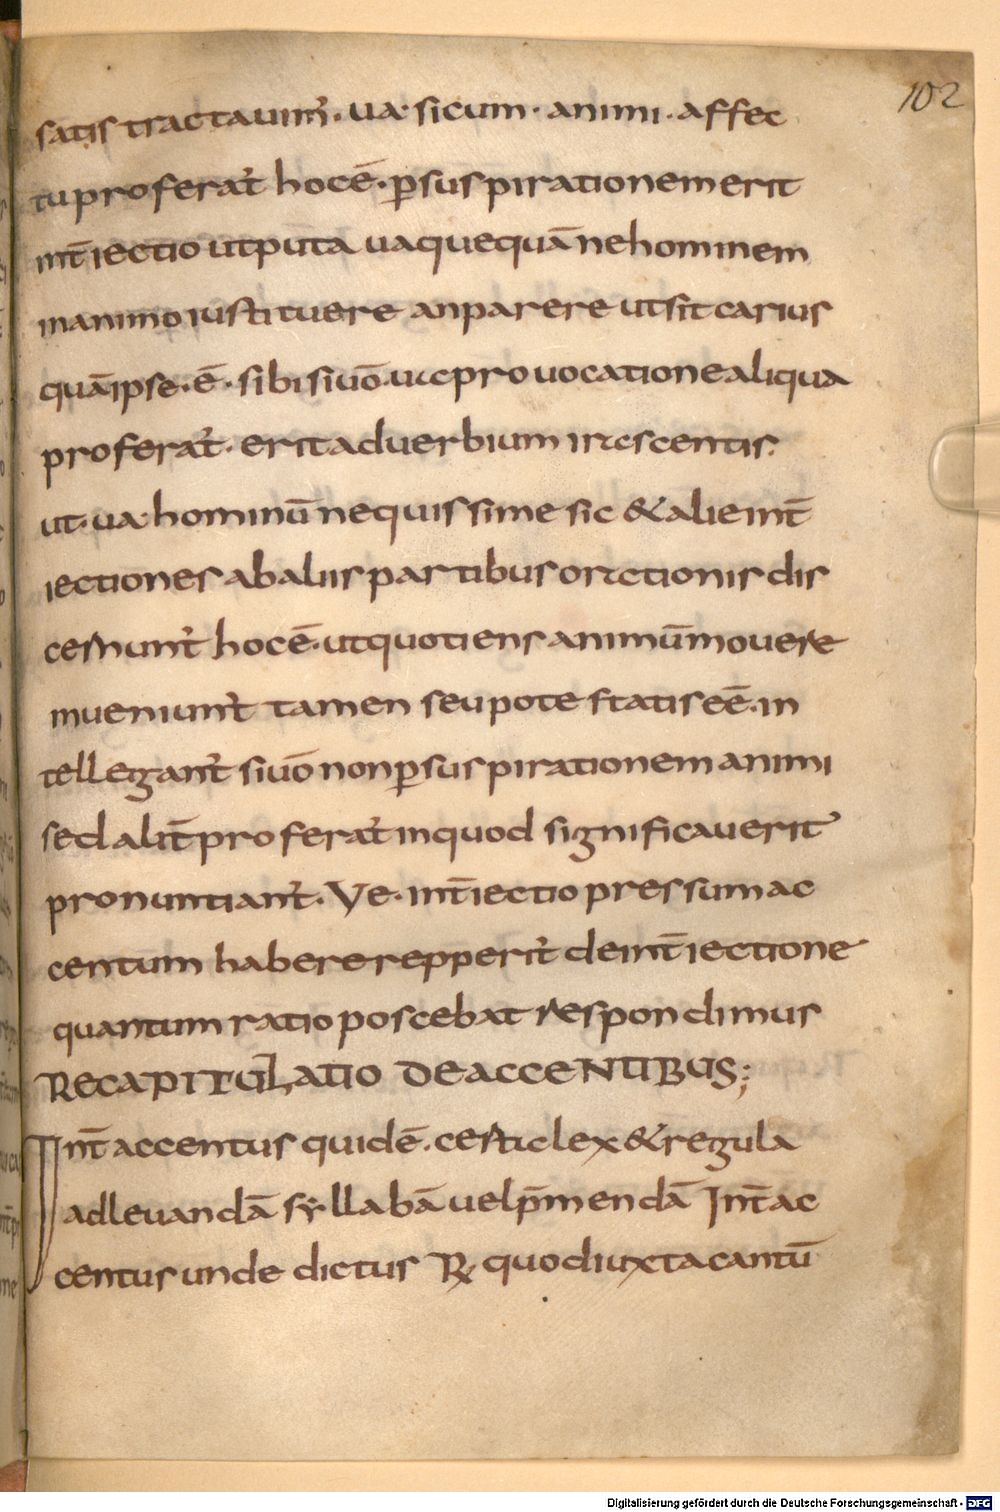 102
satis tractauim̄. ua sicum. animi. affec
tu proferat̄ hoc ē. p̄ suspirationem erit
int̄iectio ut puta ua quequā ne hominem
in animo iustituere an parere ut sit carius
quā ipse. ē. sibi siuō. uc prouocatione aliqua
proferat̄. erit aduerbium irascentis.
ut. ua. hominū nequissime sic & alie int̄
iectiones ab aliis partibus orationis dis
cernunt̄ hoc ē. ut quotiens animū mouere
inueniunt̄ tamen seu potestatis eē. in
tellegant̄ siuō non p̄ suspirationem animi
sed alit̄ proferat̄ in quod significauerit
pronuntiant̄. Ve. int̄iectio pressum ac
centum habere repperit̄ de int̄iectione
quantum ratio poscebat respondimus
RECAPITULATIO DE ACCENTIBUS;
Int̄ accentus quidē. certa lex & regula
ad leuandā syllabā uel p̄mendā Int̄ ac
centus unde dictus R̸ quod iuxta cantū
Digitalisierung gefördert durch die Deutsche Forschungsgemeinschaft - DFG